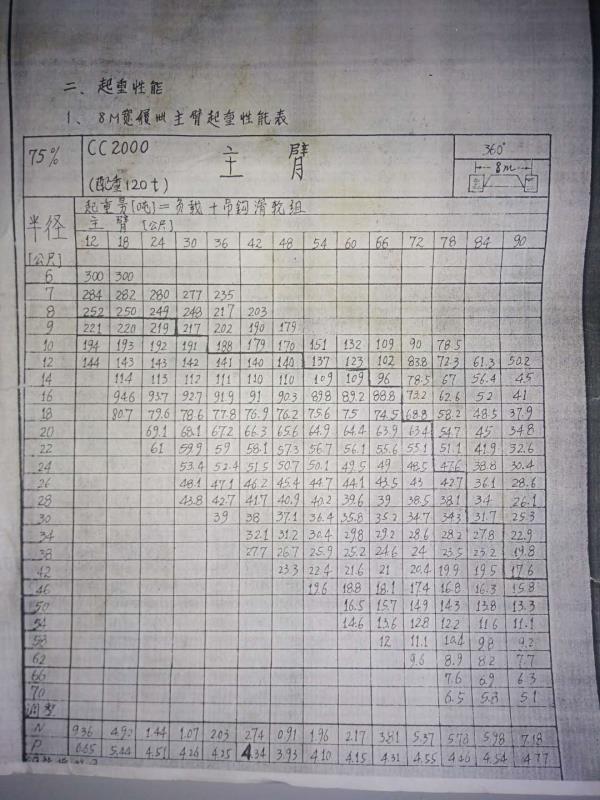 二、起重性能
1、8M宽履带主臂起重性能表
75% CC2000 主臂 360°
(配重120t) 8m
起重量[吨]=负载+吊钩滑轮组
半径 主臂 [公尺]
[公尺] 12 18 24 30 36 42 48 54 60 66 72 78 84 90
6 300 300
7 284 282 280 277 235
8 252 250 249 248 217 203
9 221 220 219 217 202 190 179
10 194 193 192 191 188 179 170 151 132 109 90 78.5
12 144 143 143 142 141 140 140 137 123 102 83.8 72.3 61.3 50.2
14 114 113 112 111 110 110 109 109 96 78.5 67 56.4 45
16 94.6 93.7 92.7 91.9 91 90.3 89.8 89.2 88.8 73.2 62.6 52 41
18 80.7 79.6 78.6 77.8 76.9 76.2 75.6 75 74.5 68.8 58.2 48.5 37.9
20 69.1 68.1 67.2 66.3 65.6 64.9 64.4 63.9 63.4 54.7 45 34.8
22 61 59.9 59 58.1 57.3 56.7 56.1 55.6 55.1 51.1 41.9 32.6
24 53.4 52.4 51.5 50.7 50.1 49.5 49 48.5 47.6 38.8 30.4
26 48.1 47.1 46.2 45.4 44.7 44.1 43.5 43 42.7 36.1 28.6
28 43.8 42.7 41.7 40.9 40.2 39.6 39 38.5 38.1 34 26.1
30 39 38 37.1 36.4 35.8 35.2 34.7 34.3 31.7 25.3
34 32.1 31.2 30.4 29.8 29.2 28.6 28.2 27.8 22.9
38 27.7 26.7 25.9 25.2 24.6 24 23.5 23.2 19.8
42 23.3 22.4 21.6 21 20.4 19.9 19.5 17.6
46 19.6 18.8 18.1 17.4 16.8 16.3 15.8
50 16.5 15.7 14.9 14.3 13.8 13.3
54 14.6 13.6 12.8 12.2 11.6 11.1
58 12 11.1 10.4 9.8 9.2
62 9.6 8.9 8.2 7.7
66 7.6 6.9 6.3
70 6.5 5.8 5.1
调整
N 9.36 4.92 1.44 1.07 2.03 2.74 0.91 1.96 2.17 3.81 5.37 5.78 5.98 7.18
P 6.65 5.44 4.51 4.26 4.25 4.34 3.93 4.10 4.15 4.31 4.55 4.46 4.54 4.77